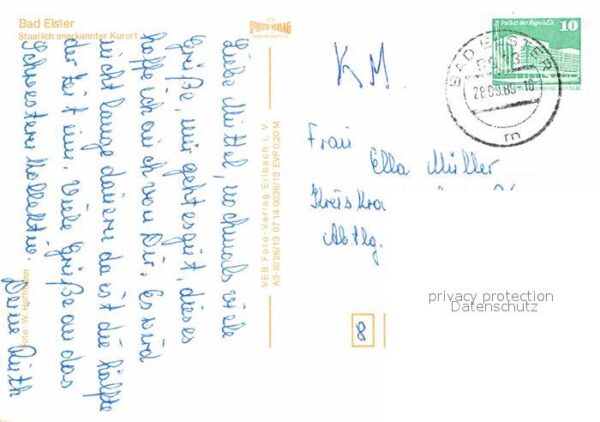 Bad Elster
Staatlich anerkannter Kurort
Liebe Muttel, nochmals viele
Grüße, mir geht es gut, dieses
hoffe ich auch von Dir. Es wird
nicht lange dauern da ist die Hälfte
der Zeit um. Viele Grüße an das
Schwestern Kollektiv. Deine Ruth
Foto: W.
VEB Foto-Verlag Erlbach i. V.
A3-III/26/13 07 14 0036/13 EVP 0,20 M
KM
Palast der Republik 10
BAD ELSTER
28.09.80-10
m
Frau
Ella Müller
Kreiskra
Abtlg.
8
privacy protection
Datenschutz